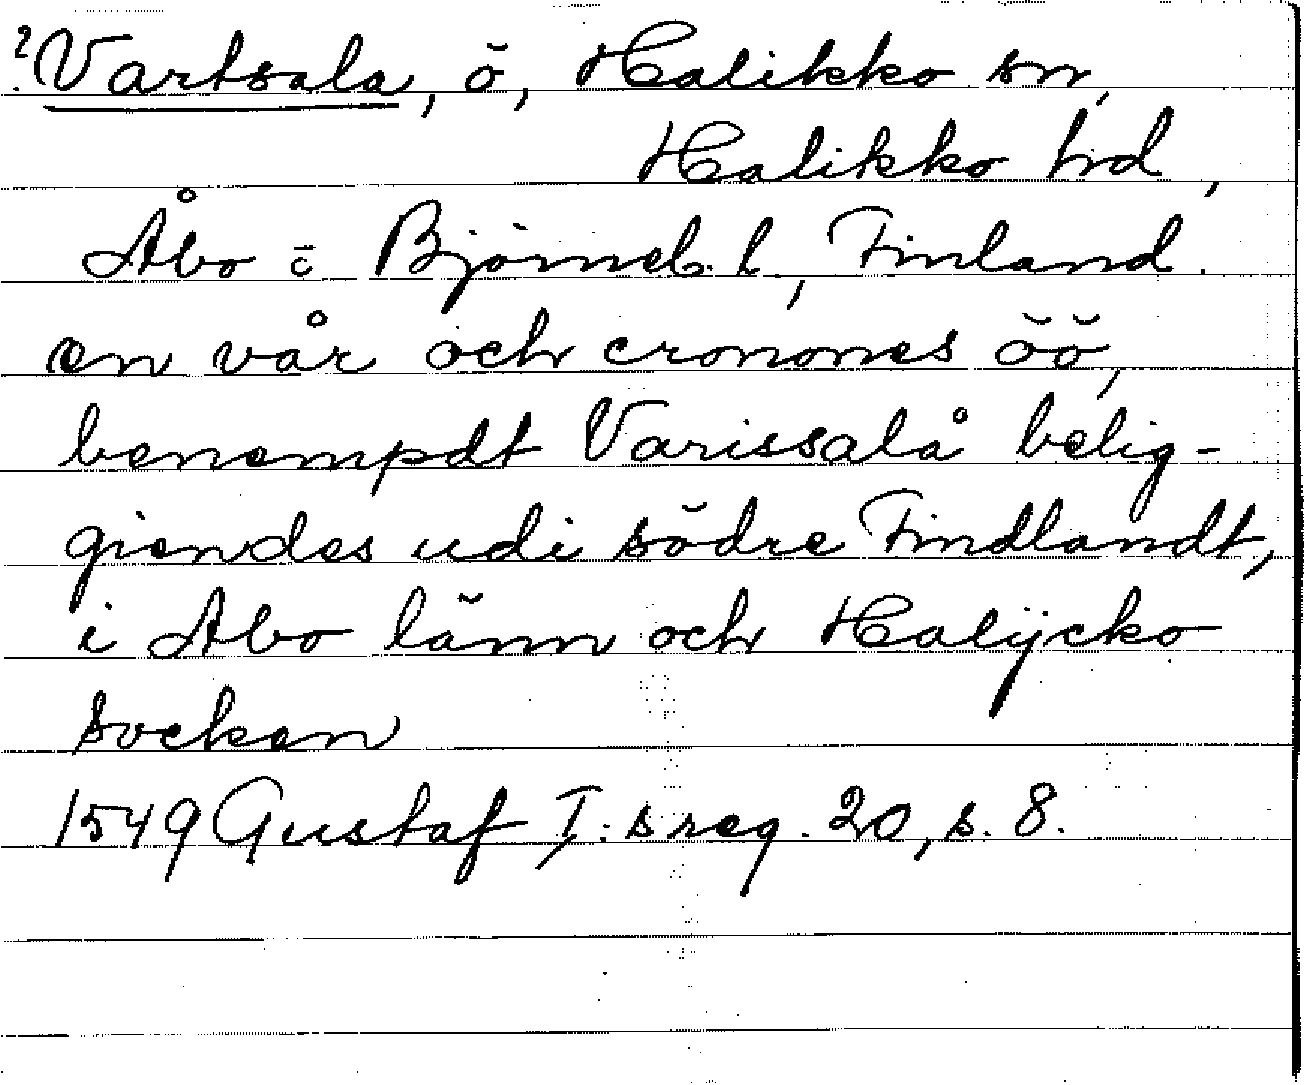 ? Vartsala, ö, Halikko sn,
Halikko hd,
Åbo o Björneb. l, Finland.
en vår och cronones öö,
benempdt Varissalå belig-
giendes udi södre Findlandt,
i Abo länn och Halijcko
socken
1549 Gustaf I:s reg. 20, s. 8.